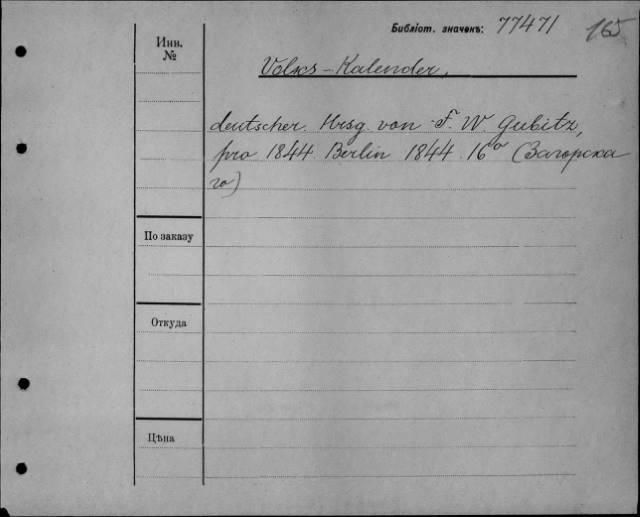 Библіот. значекъ: 77471 165
Инв. №
Volks-Kalender,
deutscher. Hrsg. von F. W. Gubitz,
pro 1844 Berlin 1844 16° (Загорска
го)
По заказу
Откуда
Цѣна